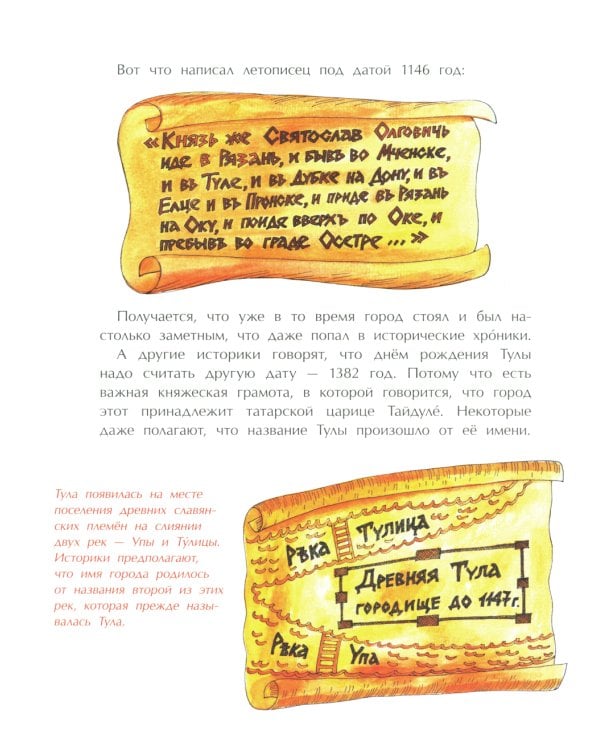 Вот что написал летописец под датой 1146 год:
«Князь же Святослав Олговичь
иде в Рязань, и бывъ во Мченске,
и въ Туле, и въ Дубке на Дону, и въ
Елце и въ Пронске, и приде въ Рязань
на Оку, и поиде вверхъ по Оке, и
пребывъ во граде Осетре ...»
Получается, что уже в то время город стоял и был на-
столько заметным, что даже попал в исторические хро́ники.
А другие историки говорят, что днём рождения Тулы
надо считать другую дату — 1382 год. Потому что есть
важная княжеская грамота, в которой говорится, что город
этот принадлежит татарской царице Тайдуле́. Некоторые
даже полагают, что название Тулы произошло от её имени.
Тула появилась на месте
поселения древних славян-
ских племён на слиянии
двух рек — Упы и Ту́лицы.
Историки предполагают,
что имя города родилось
от названия второй из этих
рек, которая прежде назы-
валась Тула.
Рѣка Тулица
Древняя Тула
городище до 1147 г.
Рѣка Упа